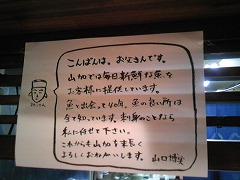 こんばんは。お父さんです。
山加では毎日新鮮な魚を
お客様に提供しています。
魚と出会って40年、魚の良い所は
全て知っています。刺身のことなら
私に任せて下さい。
これからも山加を末長く
よろしくおねがいします。
山口博